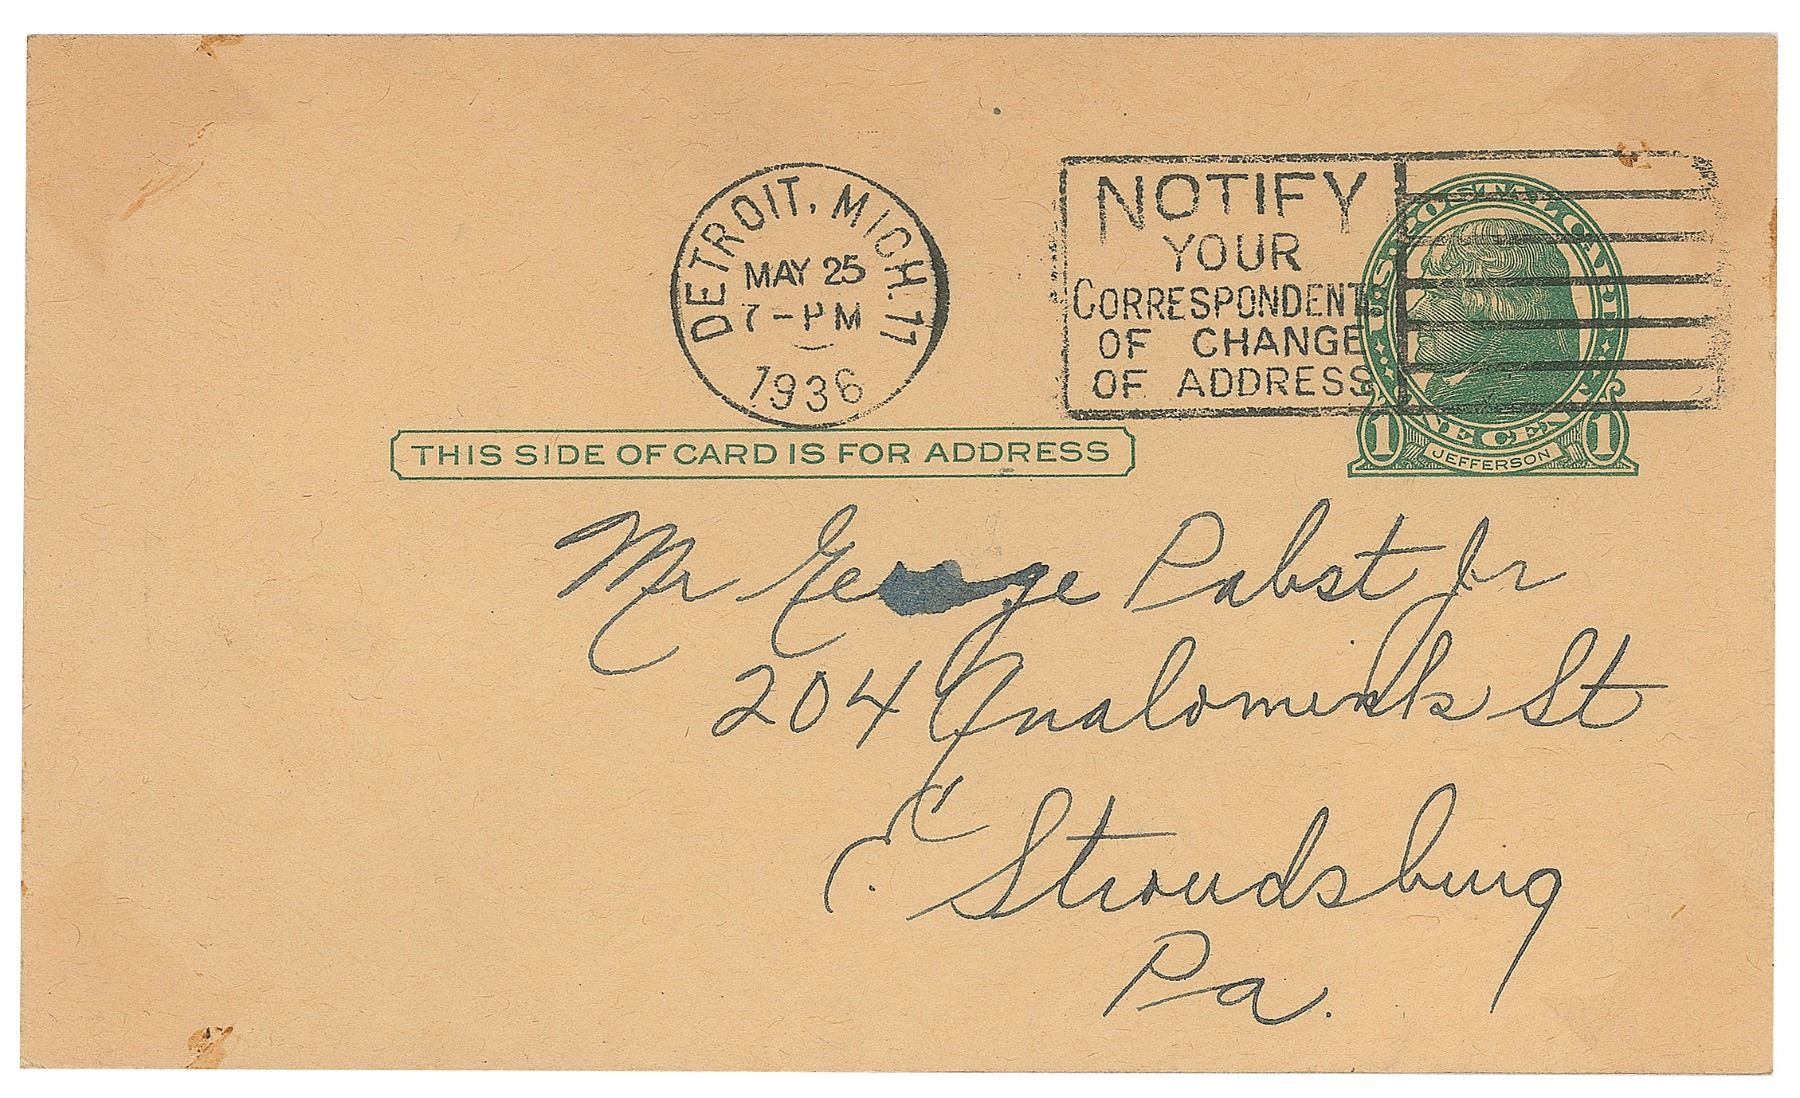 DETROIT, MICH. 17
MAY 25
7-PM
1936
NOTIFY
YOUR
CORRESPONDENTS
OF CHANGE
OF ADDRESS
U.S. POSTAL CARD
ONE CENT
1 JEFFERSON 1
THIS SIDE OF CARD IS FOR ADDRESS
Mr George Pabst Jr
204 Analomink St
E. Stroudsburg
Pa.